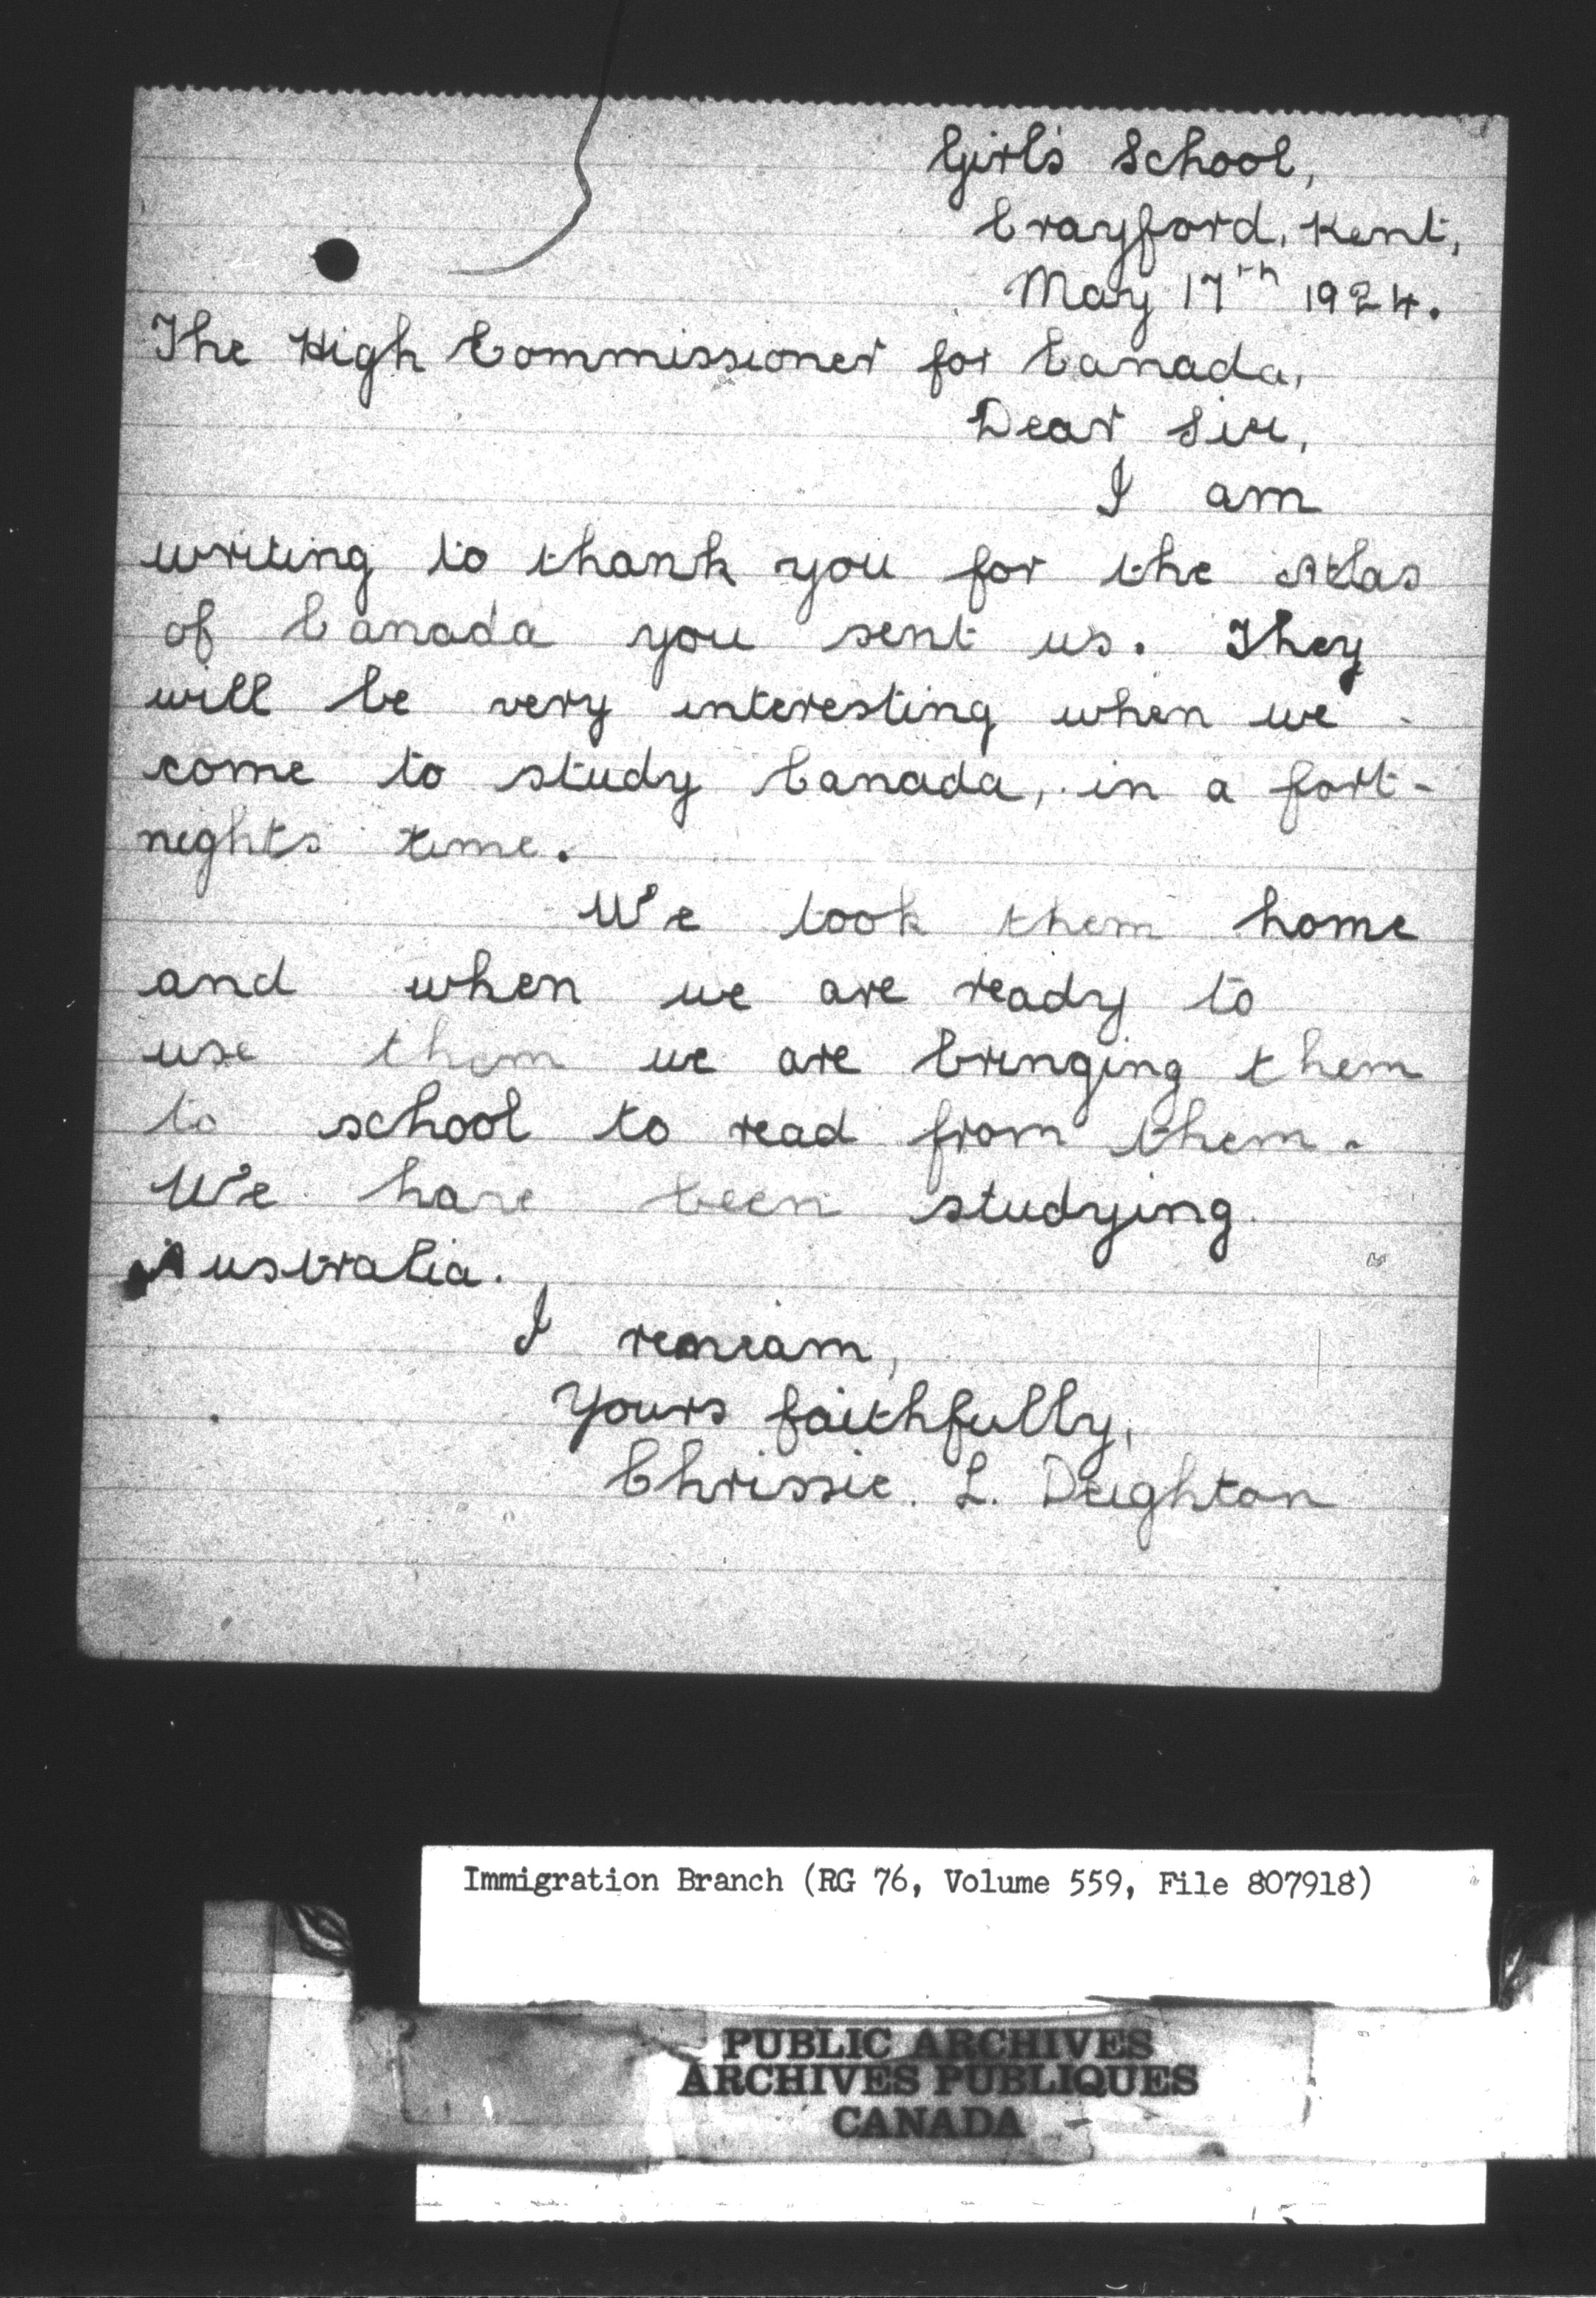 Girl's School,
Crayford, Kent,
May 17th 1924.
The High Commissioner for Canada,
Dear Sir,
I am
writing to thank you for the Atlas
of Canada you sent us. They
will be very interesting when we
come to study Canada, in a fort-
nights time.
We took them home
and when we are ready to
use them we are bringing them
to school to read from them.
We have been studying
Australia.
I remiam,
Yours faithfully,
Chrissie. L. Deighton
Immigration Branch (RG 76, Volume 559, File 807918)
PUBLIC ARCHIVES
ARCHIVES PUBLIQUES
CANADA